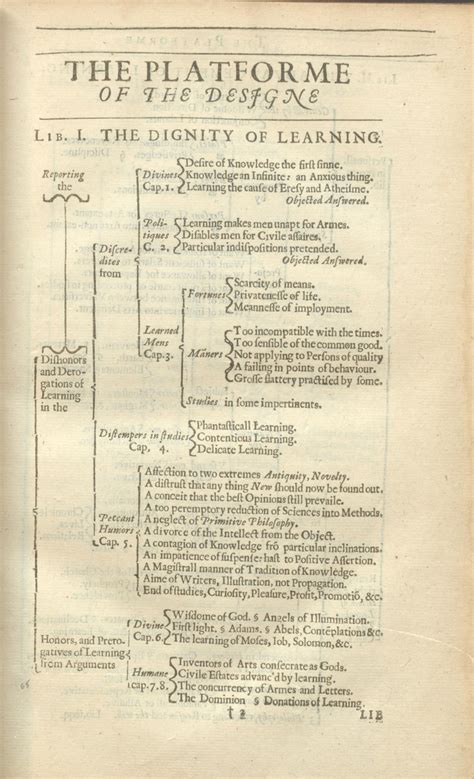 THE PLATFORME
OF THE DESIGNE
LIB. I. THE DIGNITY OF LEARNING.
Reporting
the
Dishonors
and Dero-
gations of
Learning
in the
Discre-
dites
from
Divines
Cap. 1.
Desire of Knowledge the first sinne.
Knowledge an Infinite: an Anxious thing.
Learning the cause of Eresy and Atheisme.
Objected Answered.
Poli-
tiques
C. 2.
Learning makes men unapt for Armes.
Disables men for Civile affaires.
Particular indispositions pretended.
Objected Answered.
Learned
Mens
Cap. 3.
Fortunes
Scarcity of means.
Privatenesse of life.
Meannesse of imployment.
Maners
Too incompatible with the times.
Too sensible of the common good.
Not applying to Persons of quality
A failing in points of behaviour.
Grosse flattery practised by some.
Studies in some impertinents.
Distempers in studies
Cap. 4.
Phantasticall Learning.
Contentious Learning.
Delicate Learning.
Peccant
Humors
Cap. 5.
Affection to two extremes Antiquity, Novelty.
A distrust that any thing New should now be found out.
A conceit that the best Opinions still prevaile.
A too peremptory reduction of Sciences into Methods.
A neglect of Primitive Philosophy.
A divorce of the Intellect from the Object.
A contagion of Knowledge frõ particular inclinations.
An impatience of suspense: hast to Positive Assertion.
A Magistrall manner of Tradition of Knowledge.
Aime of Writers, Illustration, not Propagation.
End of studies, Curiosity, Pleasure, Profit, Promotiõ, &c.
Honors, and Prero-
gatives of Learning
from Arguments
Divine
Cap. 6
Wisdome of God. § Angels of Illumination.
First light. § Adams. § Abels, Contẽplations &c.
The learning of Moses, Iob, Solomon, &c.
Humane
cap. 7. 8.
Inventors of Arts consecrate as Gods.
Civile Estates advanc'd by learning.
The concurrency of Armes and Letters.
The Dominion § Donations of Learning.
t 2
LIB